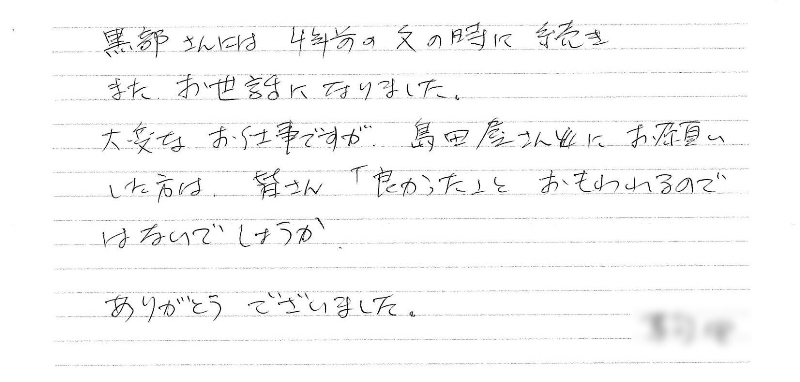 黒部さんには 4年前の父の時に続き
また お世話になりました。
大変な お仕事ですが、島田屋さんに お願い
した方は、皆さん「良かった」と おもわれるので
はないでしょうか
ありがとう ございました。